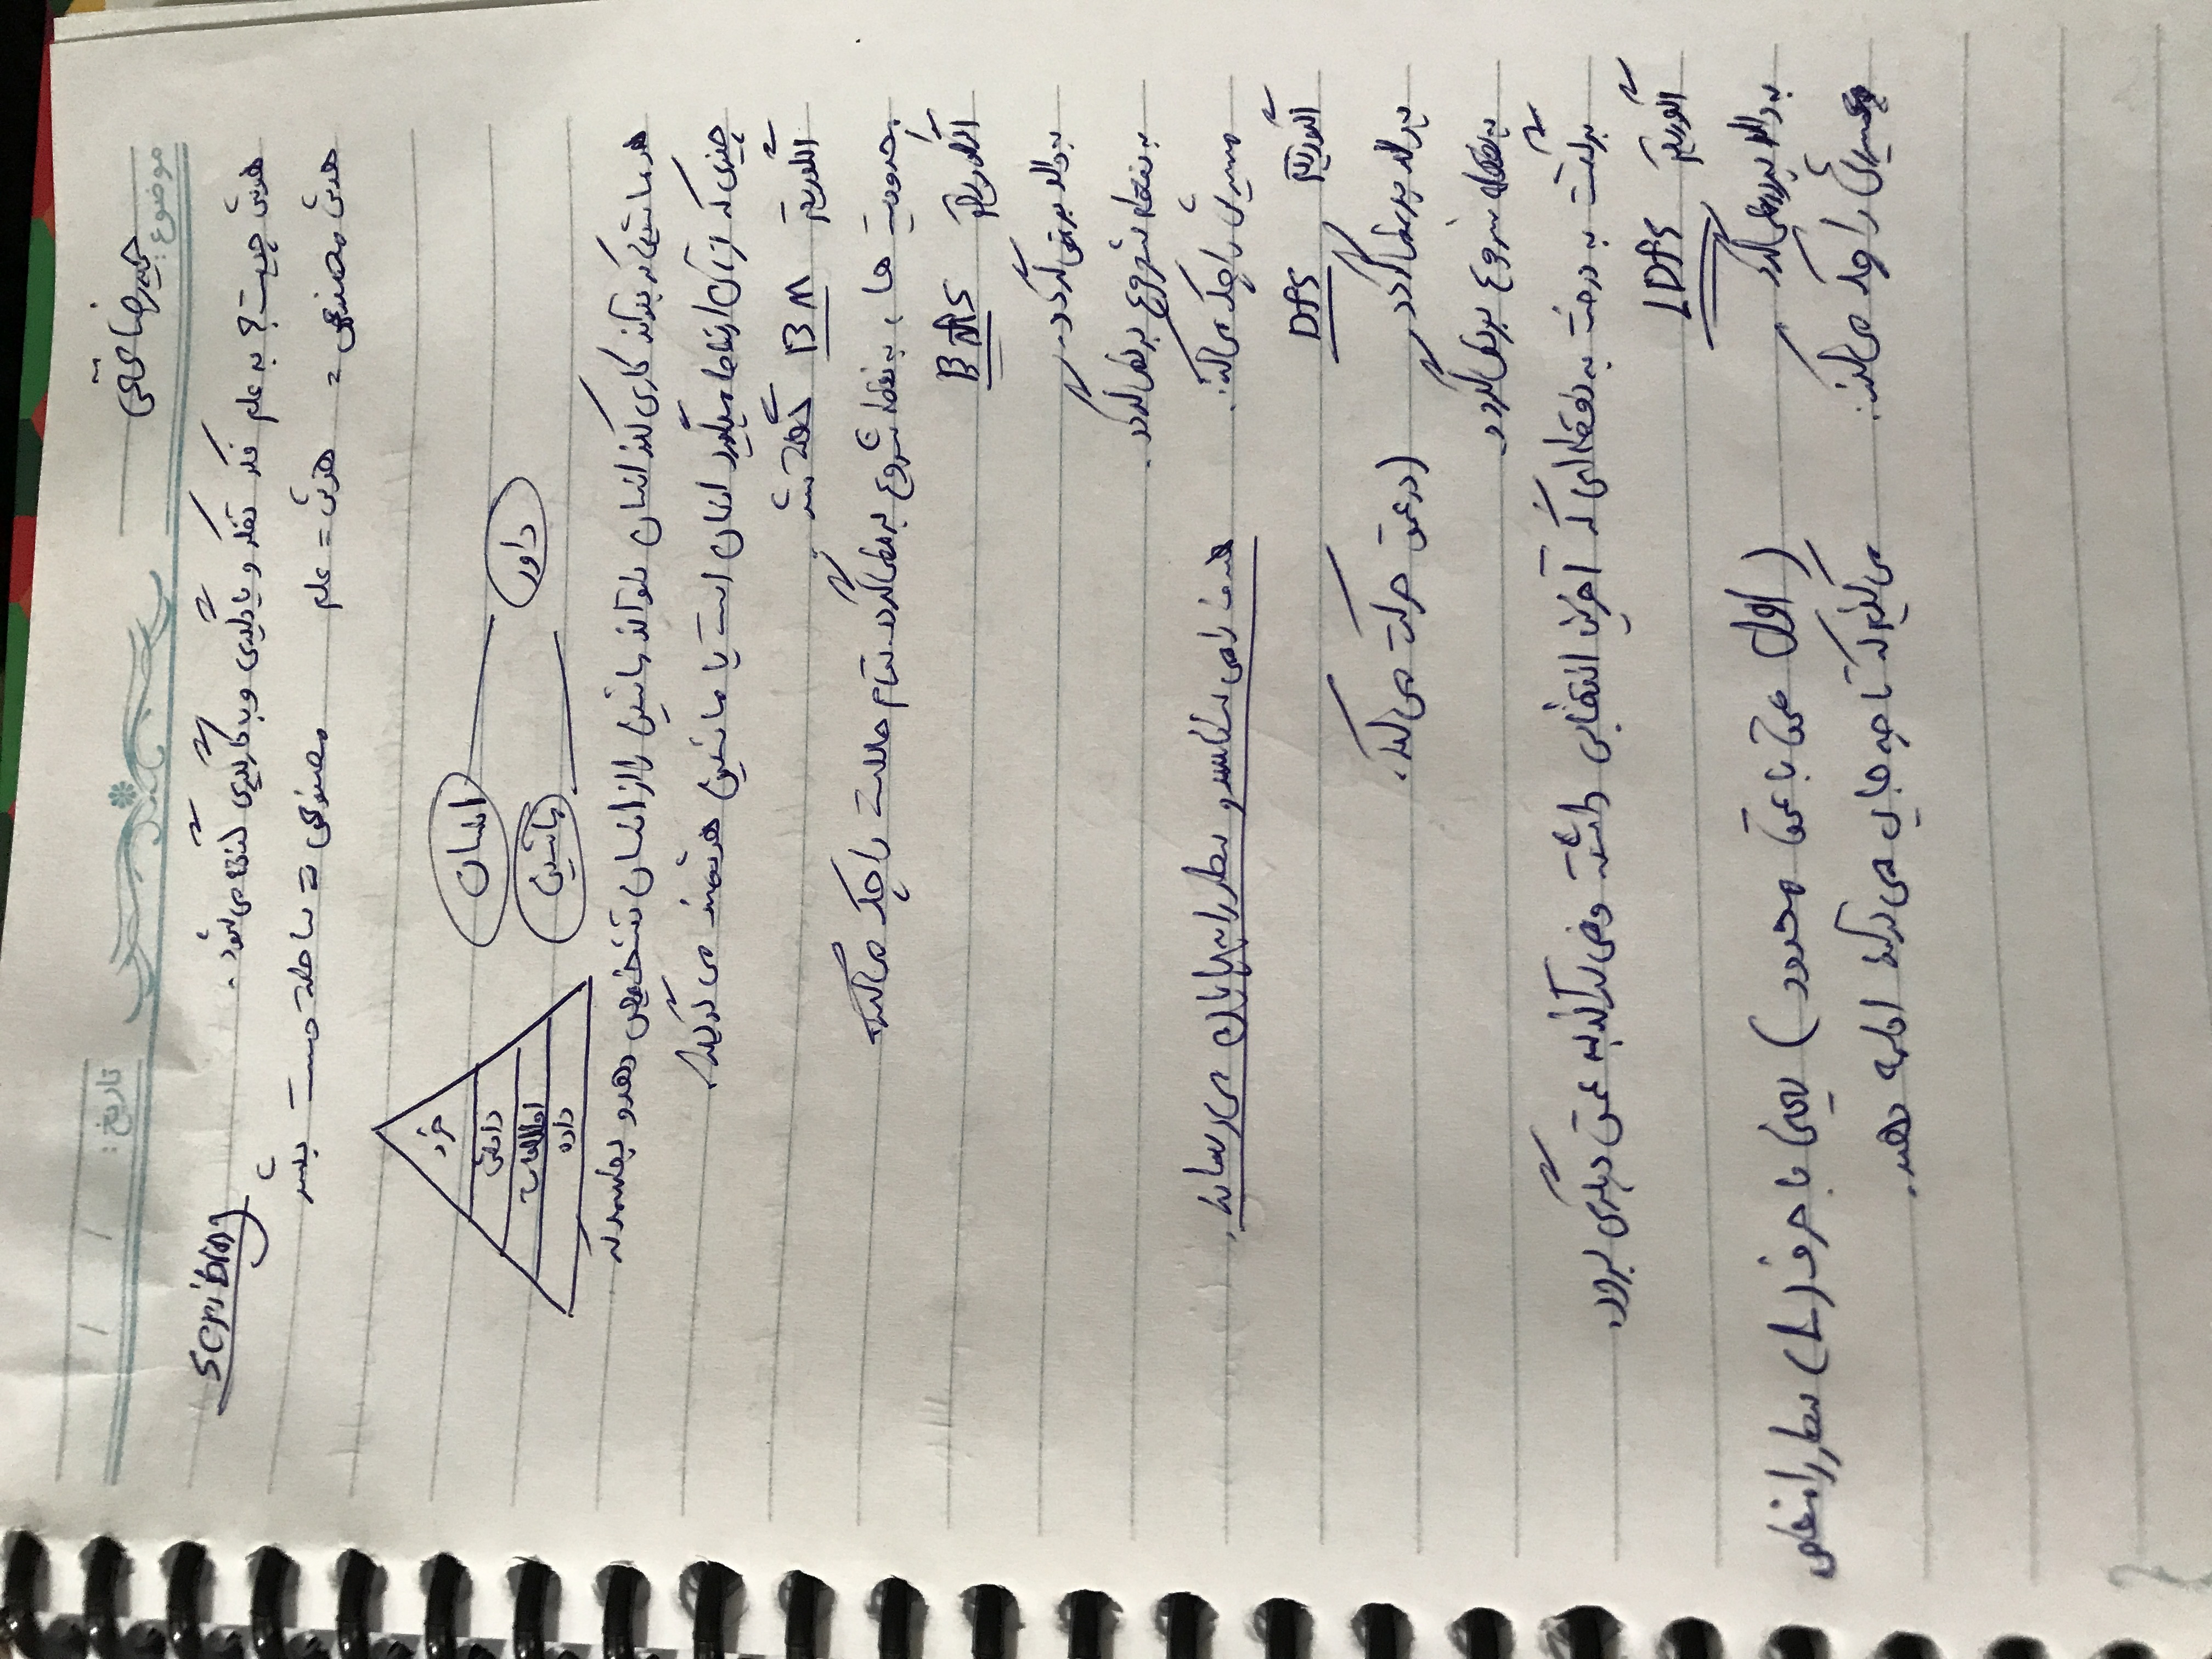 موضوع: حمیدرضا تقی
تاریخ: / /
scribing
هوش چیست؟ به علم فکر تفکر و یادگیری و باکارگیری گفته می‌شود.
هوش مصنوعی = هوش = علم مصنوعی = ساخته دست بشر
خرد
دانش
اطلاعات
داده
انسان
ماشین
داور
هر ماشینی که بتواند کاری کند انسان نتواند ماشین را از انسان تشخیص دهد و بفهمد که
چیزی که از آن ارتباط میگیرد انسان است یا ماشین هوشمند می‌گویند.
الگوریتم BM گفته شد.
محدودیت ها، به نقطه شروع بر نمی‌گردد. تمام حالات را چک می‌کند.
الگوریتم BFS
به والد بر نمی‌گردد.
به نقطه شروع بر نمی‌گردد.
مسیرش را چک می‌کند. هدف را می‌شناسد و ساختار را به پایان می‌رساند.
الگوریتم DFS
به والد بر نمی‌گردد (در عمق حرکت می‌کند.
به نقطه شروع بر نمی‌گردد.
برگشت به درخت به نقطه‌ای که آخرین انتخابی داشته و می‌تواند به عمق دیگری برود.
الگوریتم LDFS
به والد بر نمی‌گردد (اول عمق با عمق محدود) یعنی با حرف (L) را مشخص
مسیرش را چک می‌کند. می‌کنیم که تا چه جایی می‌تواند ادامه دهد.